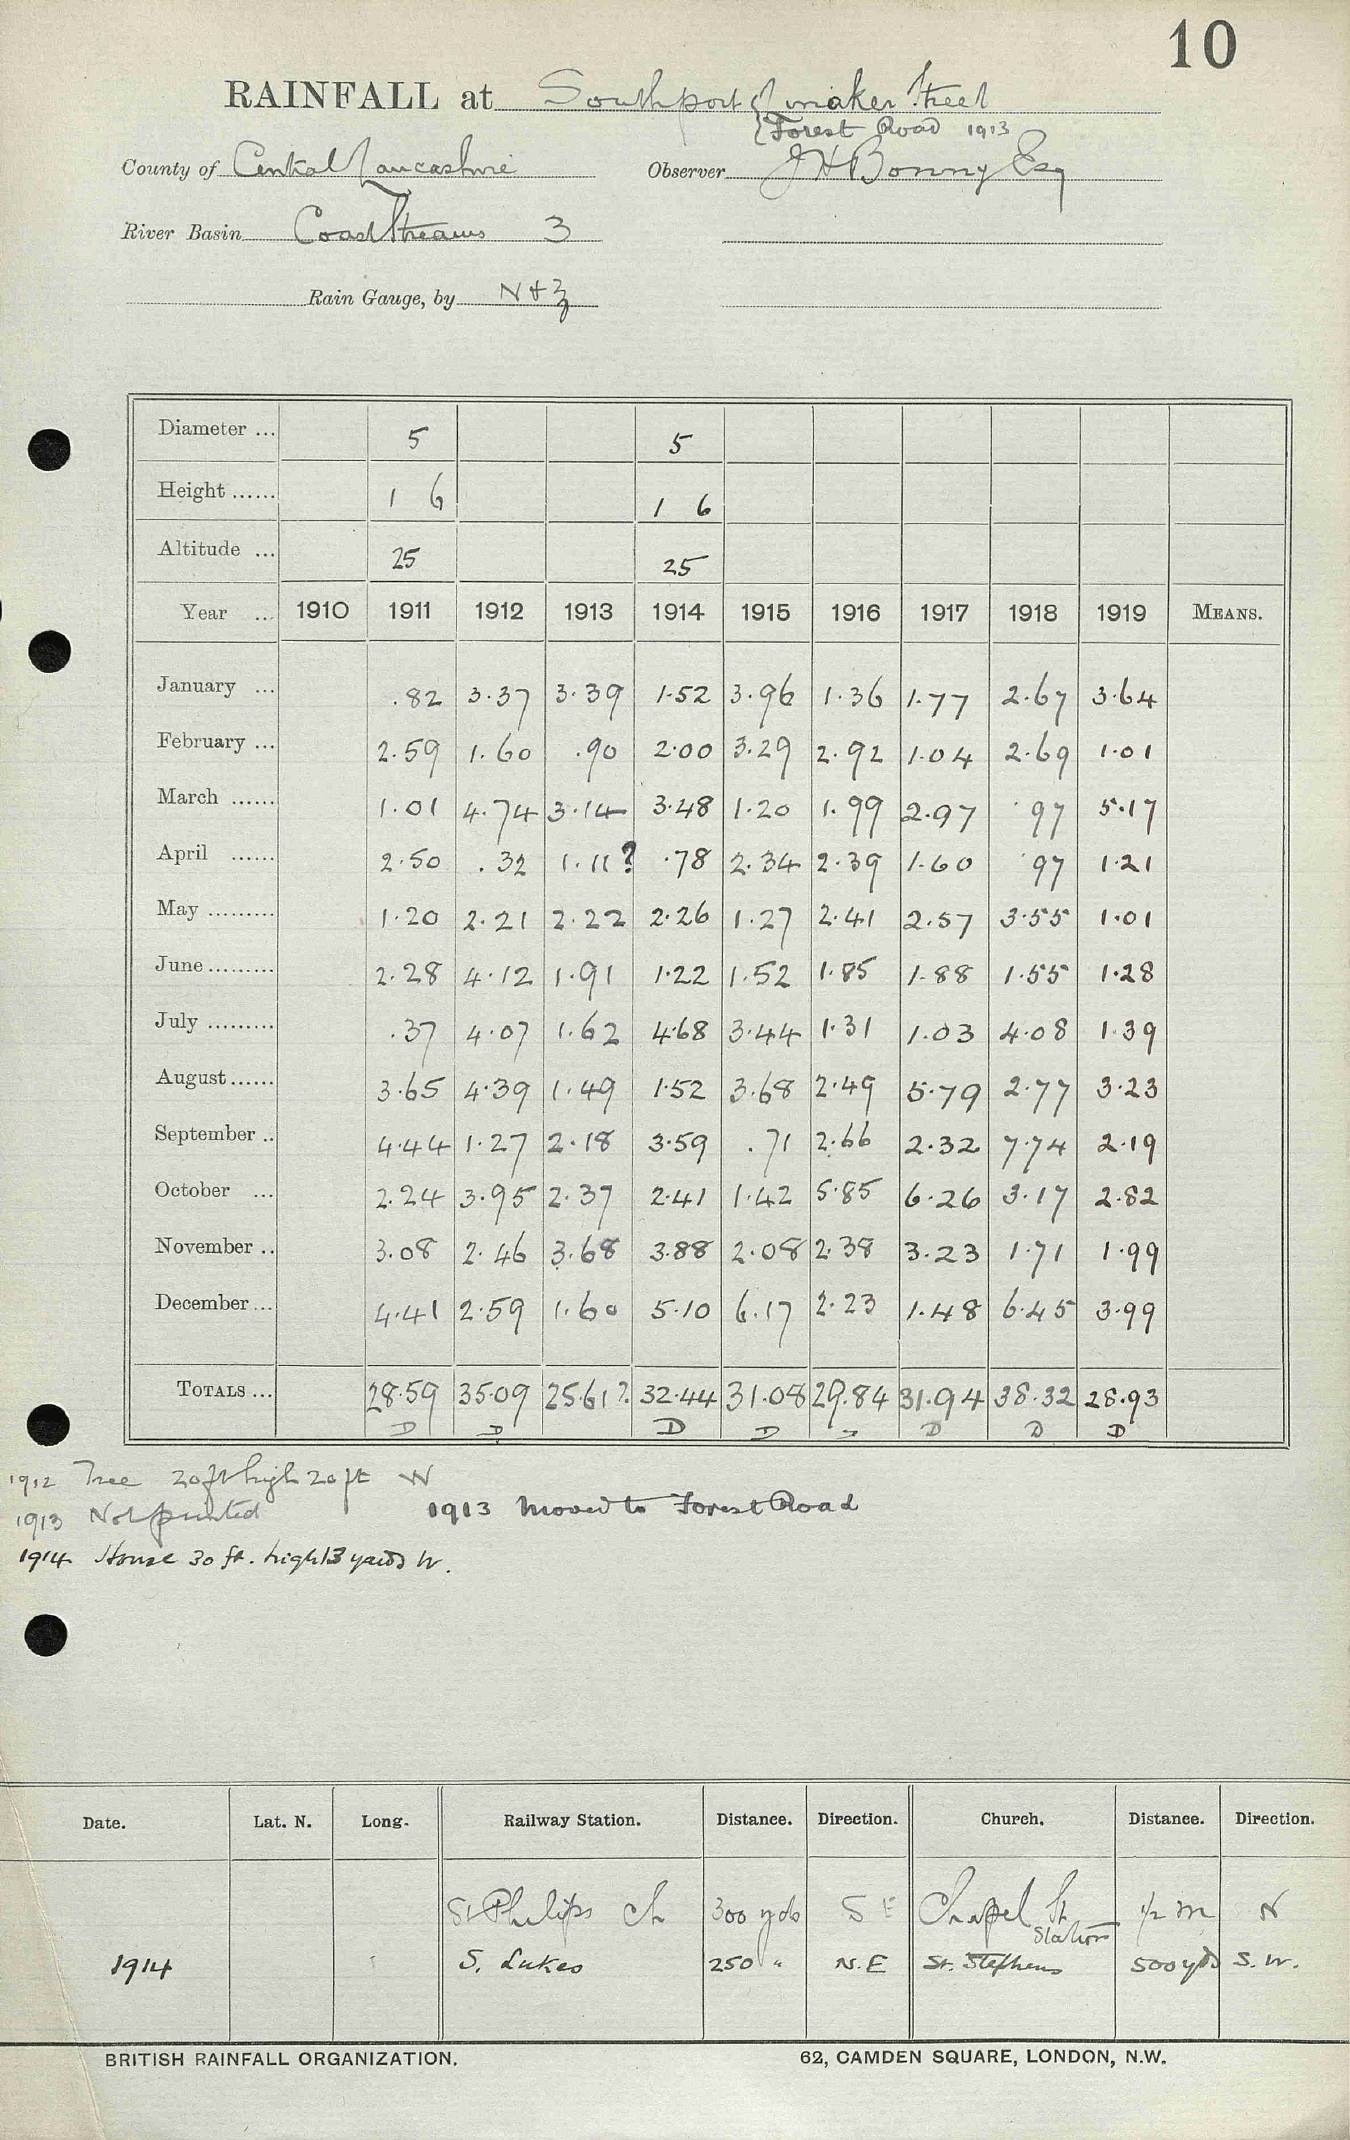 10
RAINFALL at Southport { maker Street
{ Forest Road 1913
County of Central Lancashire Observer J H Bonny Esq
River Basin Coast Streams 3
Rain Gauge, by N & Z
Diameter ... 5 5
Height ...... 1 6 1 6
Altitude ... 25 25
Year ... 1910 1911 1912 1913 1914 1915 1916 1917 1918 1919 MEANS.
January ... .82 3.37 3.39 1.52 3.96 1.36 1.77 2.67 3.64
February ... 2.59 1.60 .90 2.00 3.29 2.92 1.04 2.69 1.01
March ...... 1.01 4.74 3.14 3.48 1.20 1.99 2.97 .97 5.17
April ...... 2.50 .32 1.11? .78 2.34 2.39 1.60 .97 1.21
May ......... 1.20 2.21 2.22 2.26 1.27 2.41 2.57 3.55 1.01
June ......... 2.28 4.12 1.91 1.22 1.52 1.85 1.88 1.55 1.28
July ......... .37 4.07 1.62 4.68 3.44 1.31 1.03 4.08 1.39
August ...... 3.65 4.39 1.49 1.52 3.68 2.49 5.79 2.77 3.23
September .. 4.44 1.27 2.18 3.59 .71 2.66 2.32 7.74 2.19
October ... 2.24 3.95 2.37 2.41 1.42 5.85 6.26 3.17 2.82
November .. 3.08 2.46 3.68 3.88 2.08 2.38 3.23 1.71 1.99
December ... 4.41 2.59 1.60 5.10 6.17 2.23 1.48 6.45 3.99
TOTALS ... 28.59 35.09 25.61? 32.44 31.08 29.84 31.94 38.32 28.93
D D D D D D D
1912 Tree 20ft high 20ft W
1913 Not printed 1913 Moved to Forest Road
1914 House 30 ft. high 13 yards W.
Date. Lat. N. Long. Railway Station. Distance. Direction. Church. Distance. Direction.
St Philips Ch 300 yds S E Chapel St Station 1/2 m N
1914 S. Lukes 250 " N.E St. Stephens 500 yds S.W.
BRITISH RAINFALL ORGANIZATION. 62, CAMDEN SQUARE, LONDON, N.W.